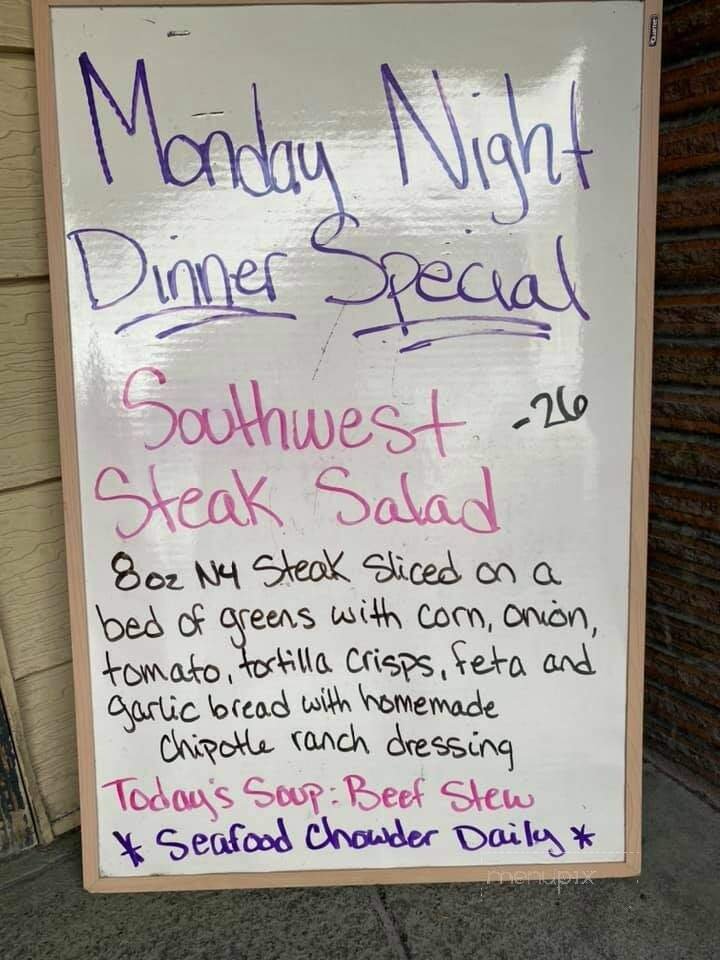 Monday Night
Dinner Special
Southwest -26
Steak Salad
8oz NY Steak Sliced on a
bed of greens with corn, onion,
tomato, tortilla crisps, feta and
garlic bread with homemade
chipotle ranch dressing
Today's Soup: Beef Stew
* Seafood Chowder Daily *
menupix